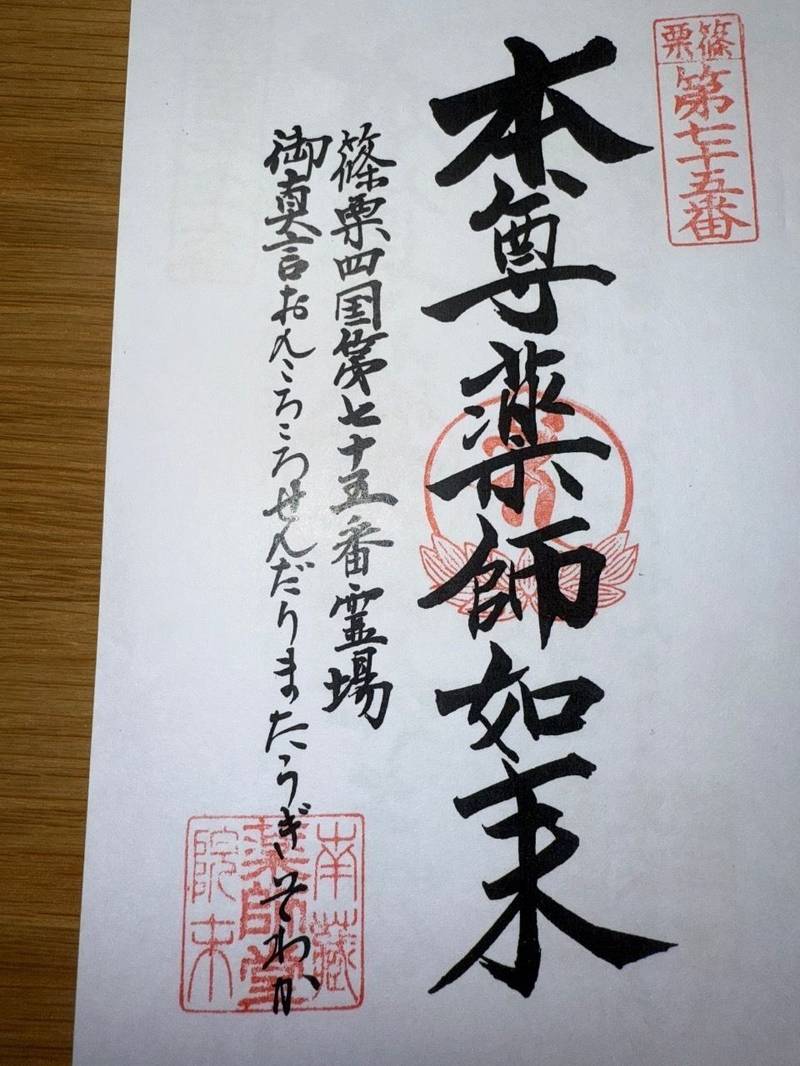 篠栗
第七十五番
本尊薬師如来
篠栗四国第七十五番霊場
御真言おんころころせんだりまたうぎそわか
南藏
薬師堂
院末